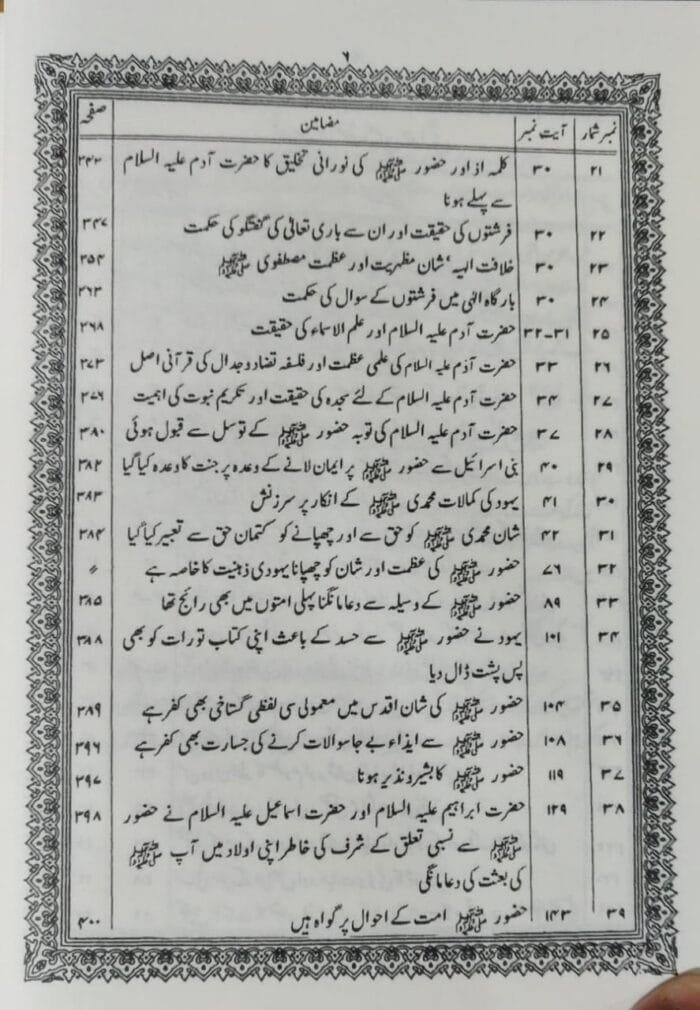 ۶
نمبر شمار آیت نمبر مضامین صفحہ
۲۱ ۳۰ کلمہ اذ اور حضور ﷺ کی نورانی تخلیق کا حضرت آدم علیہ السلام ۲۴۳
سے پہلے ہونا
۲۲ ۳۰ فرشتوں کی حقیقت اور ان سے باری تعالیٰ کی گفتگو کی حکمت ۳۴۷
۲۳ ۳۰ خلافت الہیہ‘ شان مظہریت اور عظمت مصطفوی ﷺ ۲۵۴
۲۴ ۳۰ بارگاہ الٰہی میں فرشتوں کے سوال کی حکمت ۲۶۳
۲۵ ۳۱-۳۲ حضرت آدم علیہ السلام اور علم الاسماء کی حقیقت ۲۶۸
۲۶ ۳۳ حضرت آدم علیہ السلام کی علمی عظمت اور فلسفہ تضاد و جدال کی قرآنی اصل ۲۷۳
۲۷ ۳۴ حضرت آدم علیہ السلام کے لئے سجدہ کی حقیقت اور تکریم نبوت کی اہمیت ۳۷۶
۲۸ ۳۷ حضرت آدم علیہ السلام کی توبہ حضور ﷺ کے توسل سے قبول ہوئی ۳۸۰
۲۹ ۴۰ بنی اسرائیل سے حضور ﷺ پر ایمان لانے کے وعدہ پر جنت کا وعدہ کیا گیا ۳۸۲
۳۰ ۴۱ یہود کی کمالات محمدی ﷺ کے انکار پر سرزنش ۳۸۳
۳۱ ۴۲ شان محمدی ﷺ کو حق سے اور چھپانے کو کتمان حق سے تعبیر کیا گیا ۳۸۴
۳۲ ۷۶ حضور ﷺ کی عظمت اور شان کو چھپانا یہودی ذہنیت کا خاصہ ہے 〃
۳۳ ۸۹ حضور ﷺ کے وسیلہ سے دعا مانگنا پہلی امتوں میں بھی رائج تھا ۳۸۵
۳۴ ۱۰۱ یہود نے حضور ﷺ سے حسد کے باعث اپنی کتاب تورات کو بھی ۳۸۸
پس پشت ڈال دیا
۳۵ ۱۰۴ حضور ﷺ کی شان اقدس میں معمولی سی لفظی گستاخی بھی کفر ہے ۳۸۹
۳۶ ۱۰۸ حضور ﷺ سے ایذاء بے جا سوالات کرنے کی جسارت بھی کفر ہے ۳۹۶
۳۷ ۱۱۹ حضور ﷺ کا بشیر و نذیر ہونا ۳۹۷
۳۸ ۱۲۹ حضرت ابراہیم علیہ السلام اور حضرت اسماعیل علیہ السلام نے حضور ۳۹۸
ﷺ سے نسبی تعلق کے شرف کی خاطر اپنی اولاد میں آپ ﷺ
کی بعثت کی دعا مانگی
۳۹ ۱۴۳ حضور ﷺ امت کے احوال پر گواہ ہیں ۴۰۰